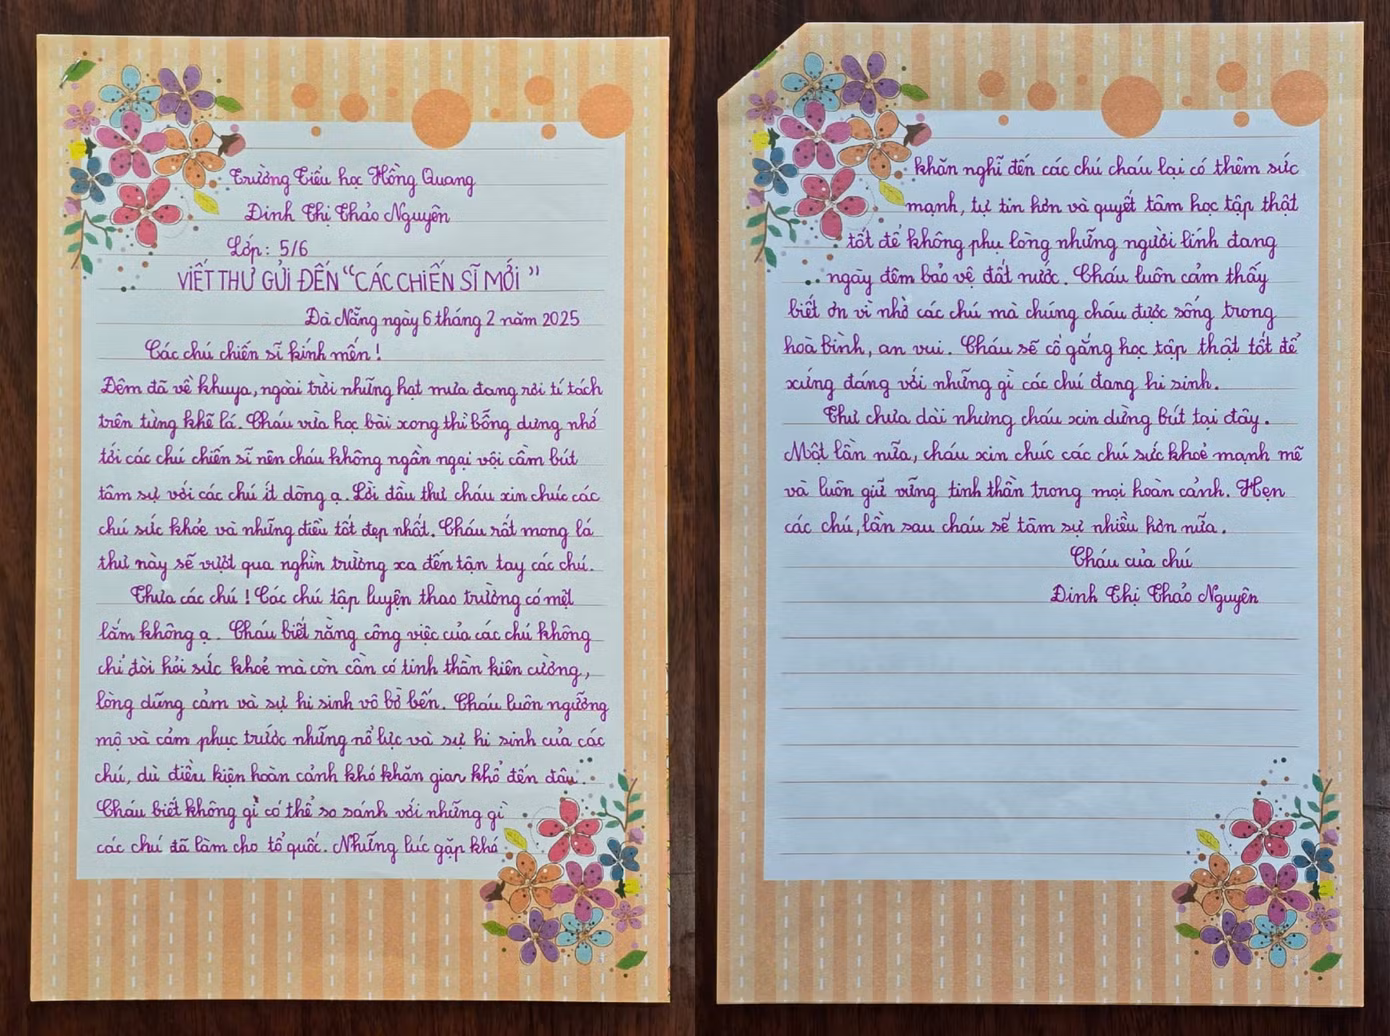 Trường Tiểu học Hồng Quang
Đinh Thị Thảo Nguyên
Lớp: 5/6
VIẾT THƯ GỬI ĐẾN "CÁC CHIẾN SĨ MỚI"
Đà Nẵng ngày 6 tháng 2 năm 2025
Các chú chiến sĩ kính mến!
Đêm đã về khuya, ngoài trời những hạt mưa đang rơi tí tách
trên từng khẽ lá. Cháu vừa học bài xong thì bỗng dưng nhớ
tới các chú chiến sĩ nên cháu không ngần ngại vội cầm bút
tâm sự với các chú ít dòng ạ. Lời đầu thư cháu xin chúc các
chú sức khỏe và những điều tốt đẹp nhất. Cháu rất mong lá
thư này sẽ vượt qua nghìn trường xa đến tận tay các chú.
Thưa các chú! Các chú tập luyện thao trường có mệt
lắm không ạ. Cháu biết rằng công việc của các chú không
chỉ đòi hỏi sức khoẻ mà còn cần có tinh thần kiên cường,
lòng dũng cảm và sự hi sinh vô bờ bến. Cháu luôn ngưỡng
mộ và cảm phục trước những nổ lực và sự hi sinh của các
chú, dù điều kiện hoàn cảnh khó khăn gian khổ đến đâu.
Cháu biết không gì có thể so sánh với những gì
các chú đã làm cho tổ quốc. Những lúc gặp khó
khăn nghĩ đến các chú cháu lại có thêm sức
mạnh, tự tin hơn và quyết tâm học tập thật
tốt để không phụ lòng những người lính đang
ngày đêm bảo vệ đất nước. Cháu luôn cảm thấy
biết ơn vì nhờ các chú mà chúng cháu được sống trong
hoà bình, an vui. Cháu sẽ cố gắng học tập thật tốt để
xứng đáng với những gì các chú đang hi sinh.
Thư chưa dài nhưng cháu xin dừng bút tại đây.
Một lần nữa, cháu xin chúc các chú sức khoẻ mạnh mẽ
và luôn giữ vững tinh thần trong mọi hoàn cảnh. Hẹn
các chú, lần sau cháu sẽ tâm sự nhiều hơn nữa.
Cháu của chú
Đinh Thị Thảo Nguyên